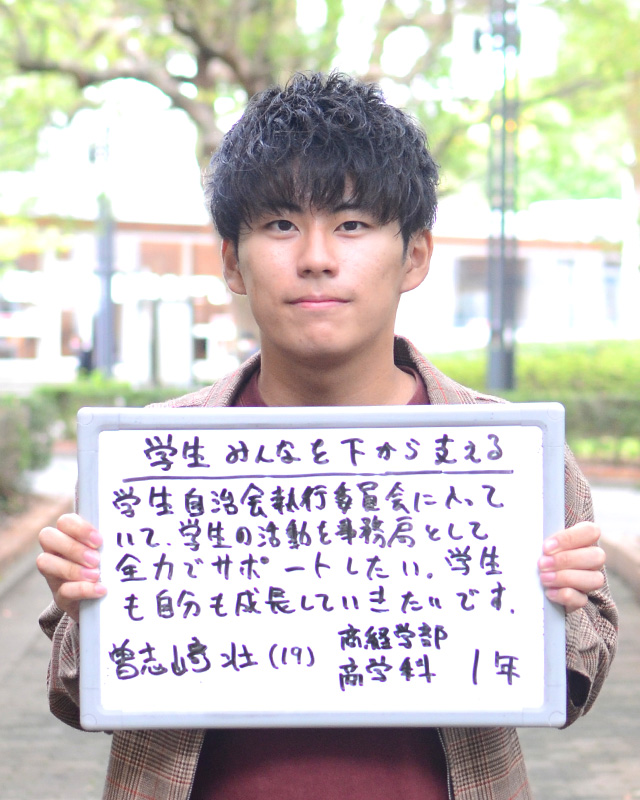 学生みんなを下から支える
学生自治会執行委員会に入って
いて、学生の活動を事務局として
全力でサポートしたい。学生
も自分も成長していきたいです。
曽志崎 壮 (19) 商経学部 商学科 1年